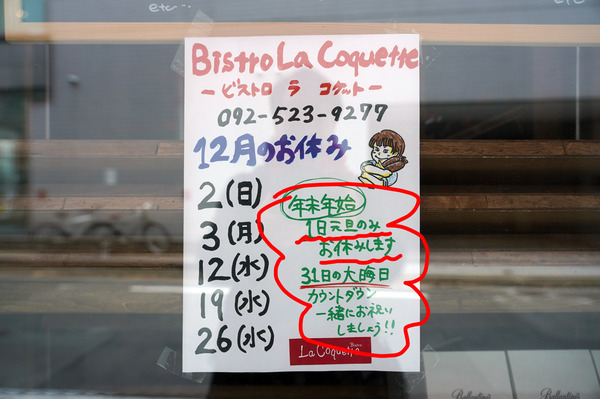 etc...
etc...
Bistro La Coquette
－ビストロ ラ コケット－
092-523-9277
12月のお休み
2(日)
3(月)
12(水)
19(水)
26(水)
年末年始
1日元旦のみ
お休みします
31日の大晦日
カウントダウン
一緒にお祝い
しましょう!!
Bistro
La Coquette
Ballantine's
Ballantine's